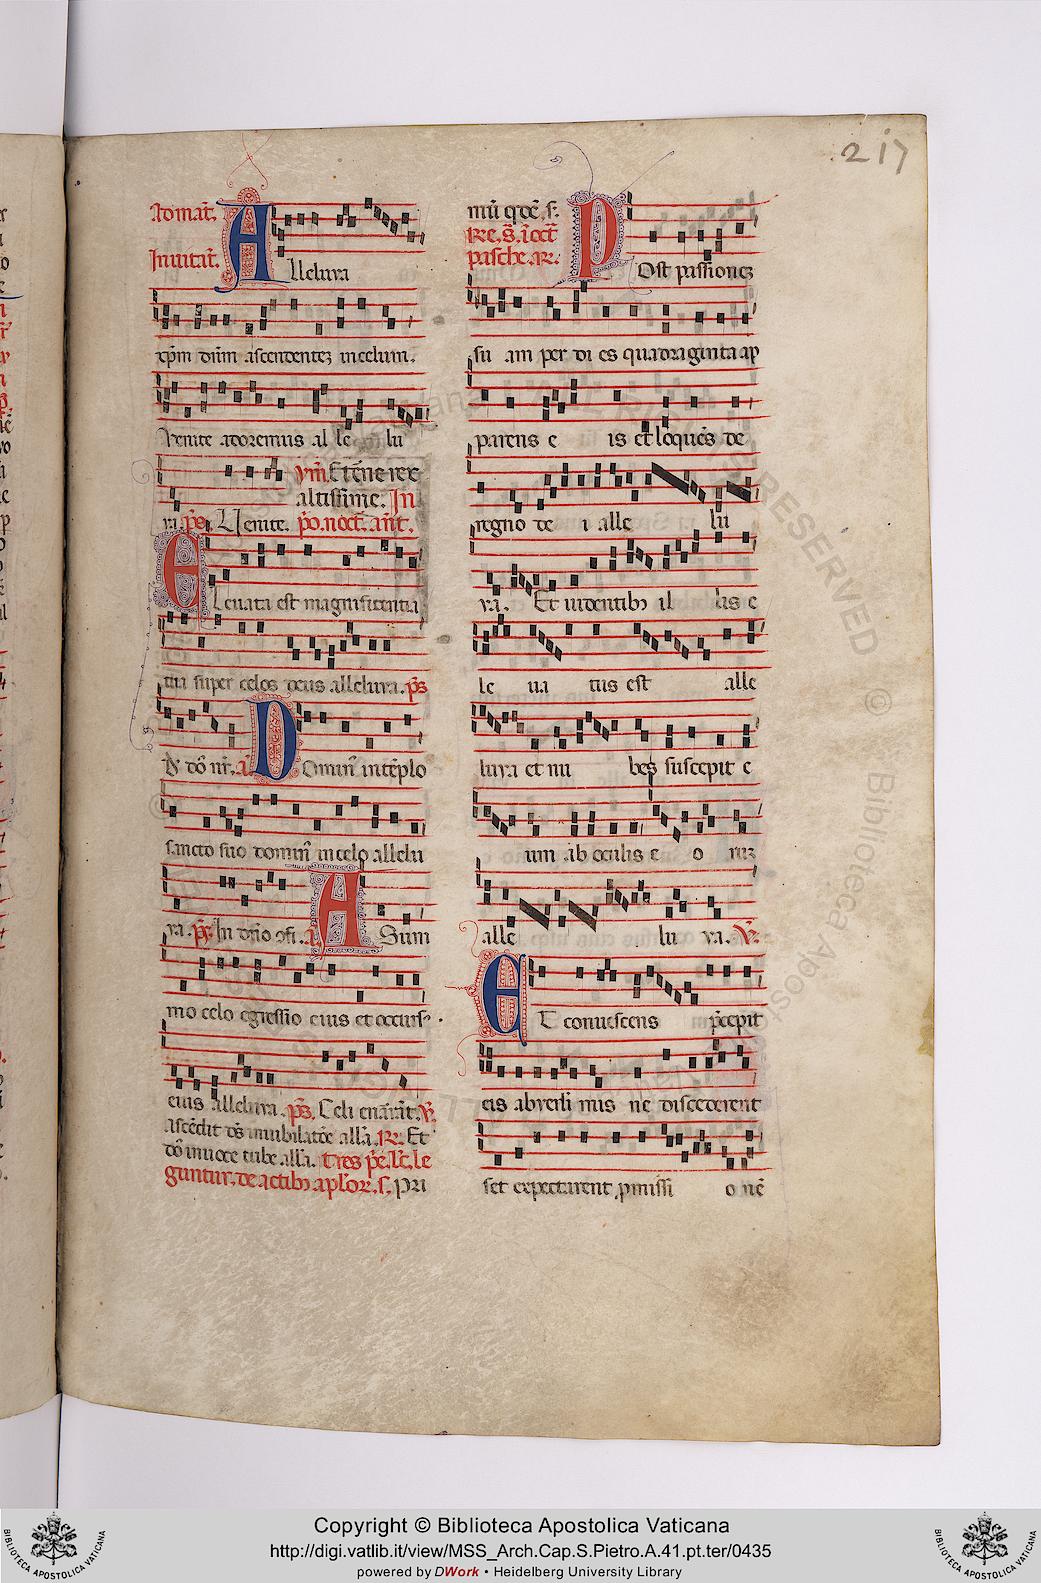 217
Ad mat̄.
Inuitat̄.
Alleluya
xp̄m dn̄m ascendentez in celum.
Venite adoremus al le lu
ym̄. Et̄ne rex
altissime. In
ya. ps̄. Venite. p̄o. noct̄. an̄t.
Eleuata est magnificentia
tua super celos deus alleluya. ps̄
dn̄e dn̄s nr̄. a. Domin̄ in tēplo
sancto suo domin̄ in celo allelu
ya. ps̄. In dn̄o cōfi. a. A Sum
mo celo egressio eius et occurs᷒
eius alleluya. ps̄. Celi enarrāt. V̄.
ascēdit ds̄ in iubilatōe all̄a. R̄. Et
dn̄s in uoce tube. all̄a. Tres p̄e. lc̄. le
guntur. de actib᷒ aplōr. s. Pri
mū qdē s.
Re. s̄. ī oct̄
pasche. R̄.
Post passionez
su am per di es quadraginta ap
parens e is et loquēs de
regno de i alle lu
ya. Et uidentib᷒ il lis e
le ua tus est alle
luya et nu bes suscepit e
um ab oculis e o ruz
alle lu ya. V̄.
Et conuescens p̄cepit
eis ab ierusoli mis ne discederent
set expectarent promissi onē
ALL RIGHTS RESERVED
© Biblioteca Apostolica Vaticana
Copyright © Biblioteca Apostolica Vaticana
http://digi.vatlib.it/view/MSS_Arch.Cap.S.Pietro.A.41.pt.ter/0435
powered by DWork • Heidelberg University Library
BIBLIOTECA APOSTOLICA VATICANA
BIBLIOTECA APOSTOLICA VATICANA